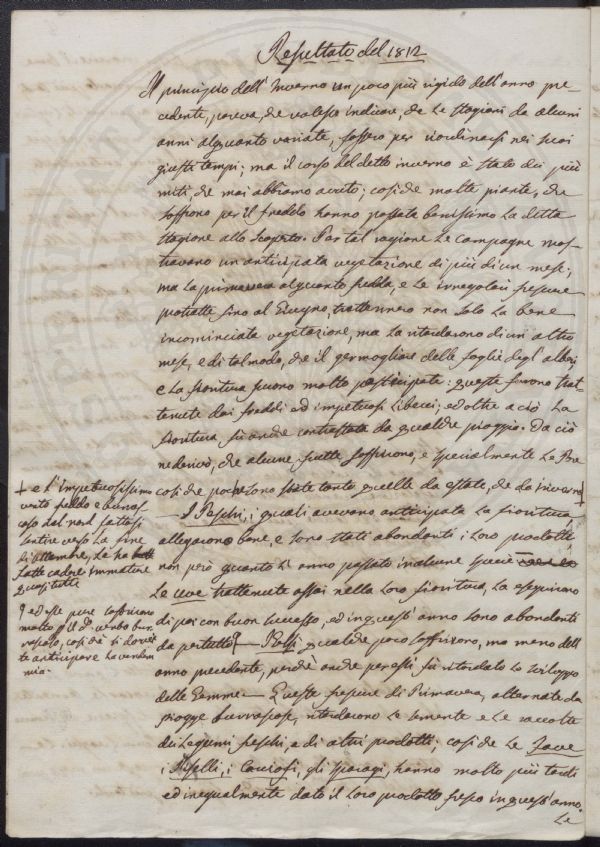 Resultato del 1812
Il principio dell'Inverno un poco più rigido dell'anno pre-
cedente, pareva, che volesse indicare, che le stagioni da alcuni
anni alquanto variate, fossero per riordinarsi nei suoi
giusti tempi; ma il corso del detto inverno è stato dei più
miti, che mai abbiamo avuto; così che molte piante, che
soffrono per il freddo hanno passata benissimo la detta
stagione allo scoperto. Per tal ragione le campagne mos-
travano un anticipata vegetazione di più di un mese;
ma la primavera alquanto fredda, e le irregolari frescure
protratte fino al Giugno, trattennero non solo la bene
incominciata vegetazione, ma la ritardarono di un altro
mese, e di tal modo, che il germogliare delle foglie degl'alberi,
e la fioritura furono molto posticipate: queste furono trat-
tenute dai freddi ed impetuosi Libecci; ed oltre a ciò la
fioritura fu anche contrastata da qualche pioggia. Da ciò
ne derivò, che alcune frutte soffrirono, e specialmente le Pere
così che poche sono state tanto quelle da estate, che da inverno
I Peschi, i quali avevano anticipata la fioritura,
allegarono bene, e sono stati abondanti i loro prodotti,
non però quanto l'anno passato in alcune specie
Le uve trattenute assai nella loro fioritura, la eseguirono
di poi con buon successo, ed in quest'anno sono abondanti
da pertutto qualche poco soffrirono, ma meno dell'
anno precedente, perchè anche per essi fu ritardato lo sviluppo
delle Gemme Queste frescure di Primavera, alternate da
piogge burrascose, ritardarono le semente e le raccolte
dei Legumi freschi, e di altri prodotti; così che le Fave
i Piselli, i Carciofi, gli sparagi, hanno molto più tardi
ed inegualmente dato il loro prodotto fresco in quest'anno.
Le
+ e l'impetuosissimo
vento freddo e buras-
coso dal nord fattosi
sentire verso la fine
di settembre, le ha
fatte cadere immature
quasi tutte
ed esse pure soffrirono
molto p. il d.o vento bur-
rascoso, così che si dovet-
te anticipare la vendem-
mia.